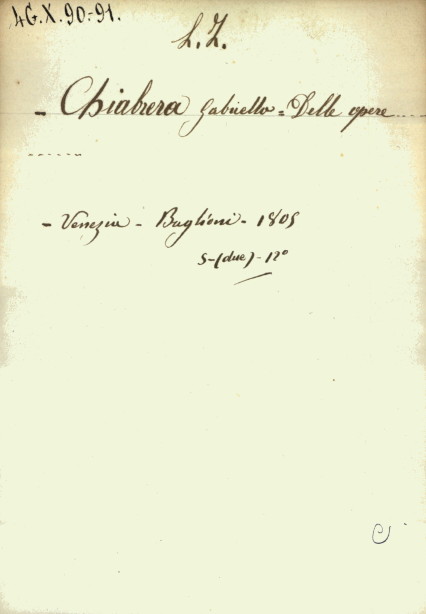 4G.X.90-91.
L.Z.
- Chiabrera Gabriello = Delle opere ....
------
- Venezia - Baglioni - 1805
5-(due)-12º
C